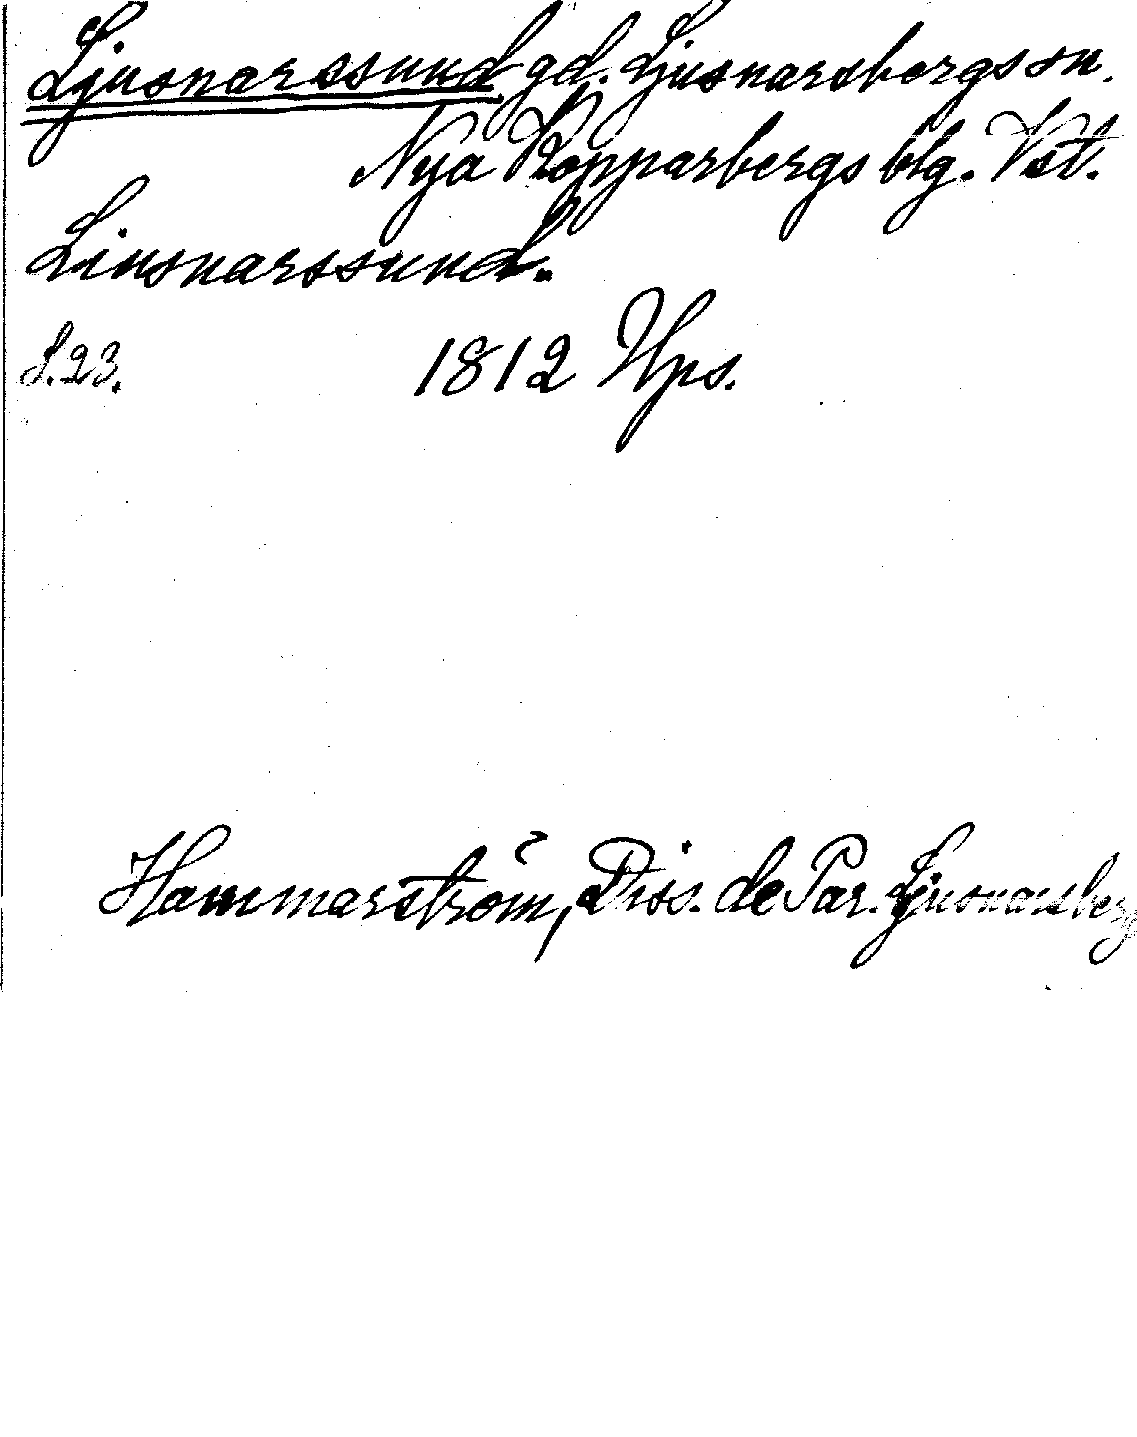 Ljusnarssund gd. Ljusnarsbergs sn.
Nya Kopparbergs blg. Vst.
Liusnarssund.
S.23. 1812 Ups.
Hammarström, Diss. de Par. Ljusnarsberg